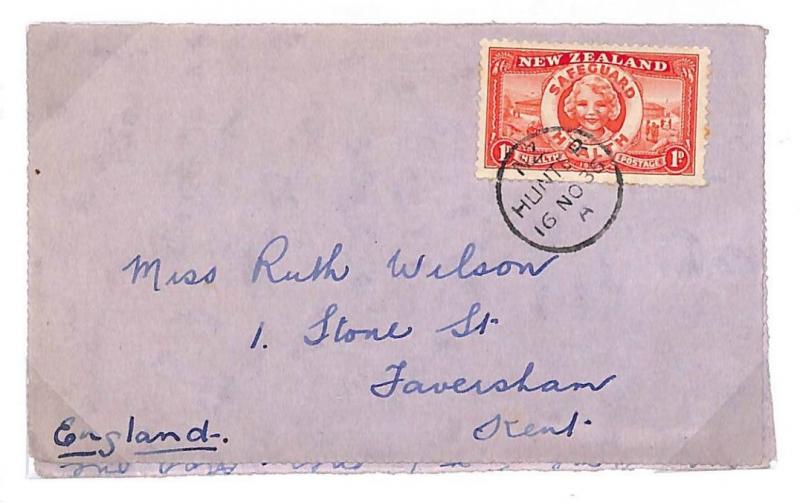 NEW ZEALAND
SAFEGUARD
HEALTH
1D HEALTH POSTAGE 1D
HUNTER
16 NO 36
A
Miss Ruth Wilson
1. Stone St
Faversham
Kent.
England.